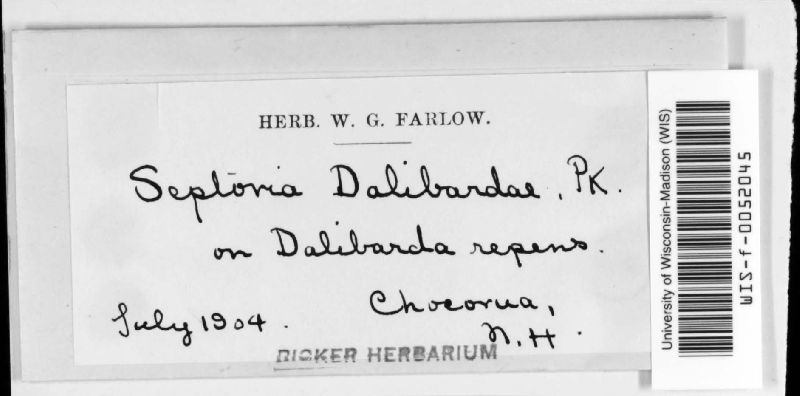 HERB. W. G. FARLOW.
Septoria Dalibardae, Pk.
on Dalibarda repens.
July 1904.
Chocorua,
N.H.
RICKER HERBARIUM
University of Wisconsin-Madison (WIS)
WIS-f-0052045